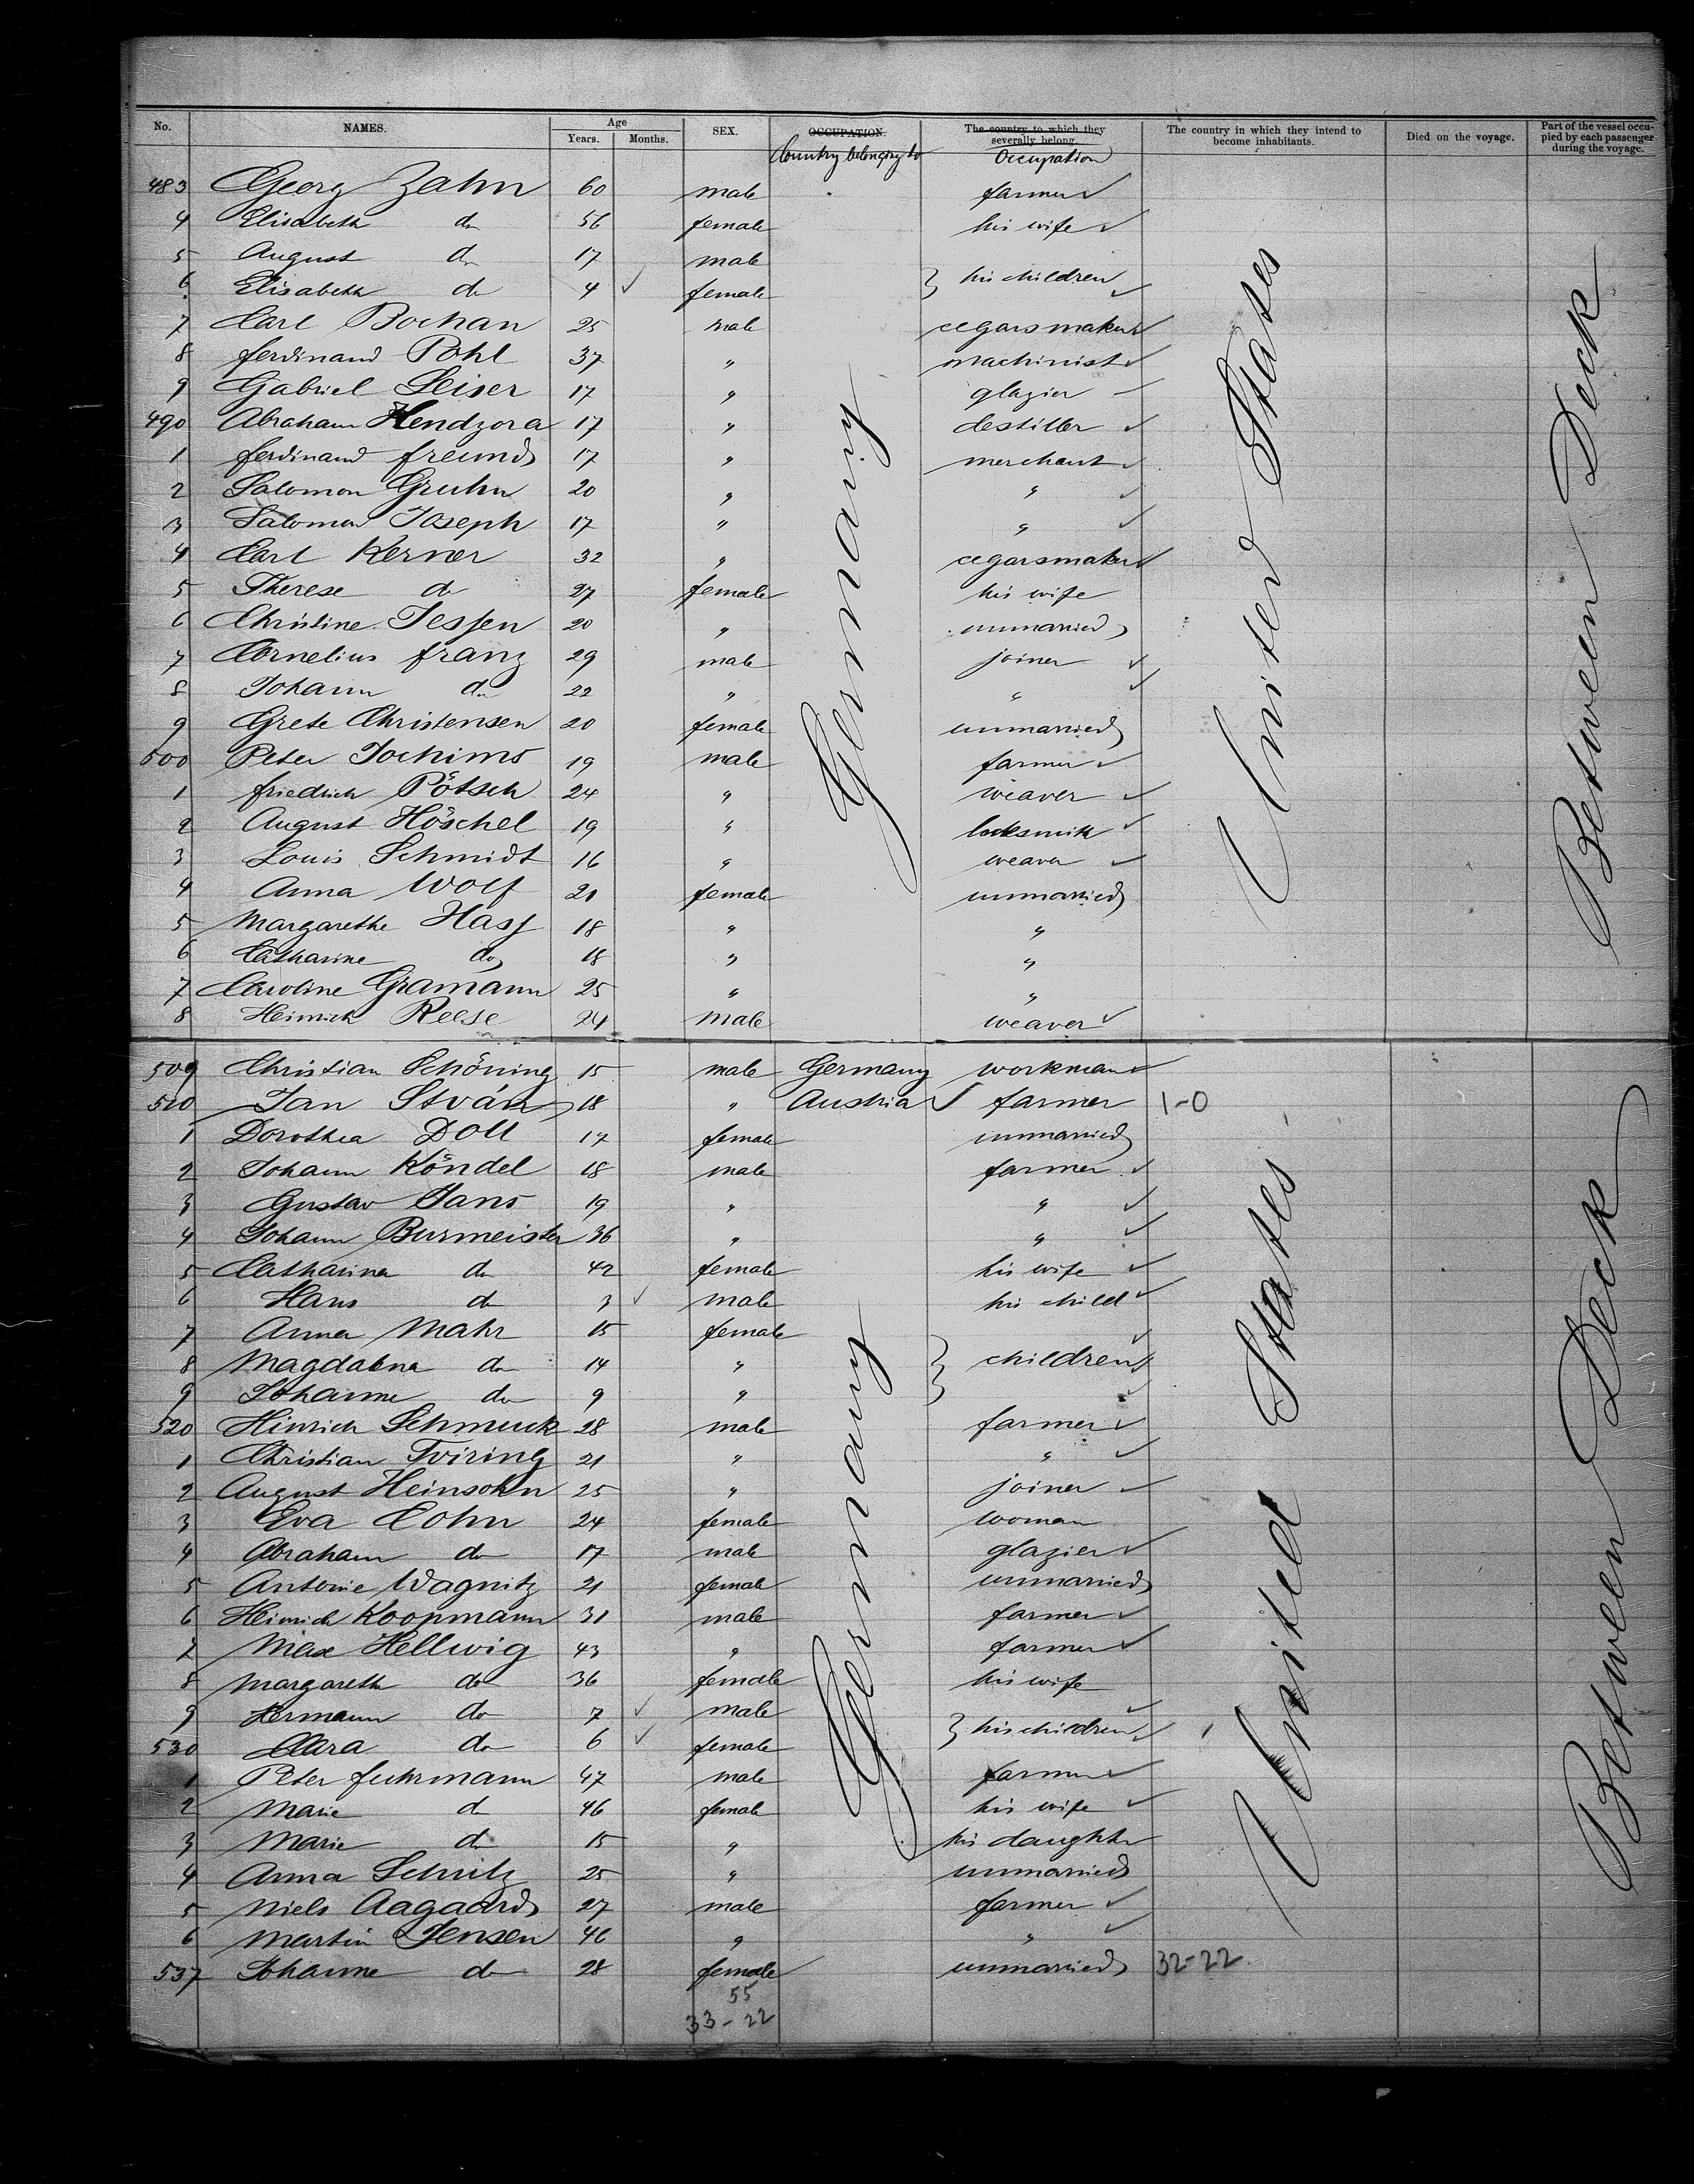 No. NAMES. Age Years. Months. SEX. OCCUPATION. The country to which they severally belong. The country in which they intend to become inhabitants. Died on the voyage. Part of the vessel occupied by each passenger during the voyage.
Country belonging to Occupation
483 Georg Zahn 60 male farmer
4 Elisabeth do 56 female his wife
5 August do 17 male
6 Elisabeth do 4 female } his children
7 Carl Bochan 25 male cegarsmaker
8 ferdinand Pohl 37 " machinist
9 Gabriel Leiser 17 " glazier
490 Abraham Hendzora 17 " destiller
1 ferdinand freund 17 " merchant
2 Salomon Gruhn 20 " "
3 Salomon Joseph 17 " "
4 Carl Kerner 32 " cegarsmaker
5 Therese do 27 female his wife
6 Christine Jessen 20 " unmarried
7 Cornelius franz 29 male joiner
8 Johann do 22 " "
9 Grete Christensen 20 female unmarried
500 Peter Jochims 19 male farmer
1 friedrich Pötsch 24 " weaver
2 August Höschel 19 " locksmith
3 Louis Schmidt 16 " weaver
4 Anna Wolf 21 female unmarried
5 Margarethe Hass 18 " "
6 Catharine do 18 " "
7 Caroline Gramann 25 " "
8 Heinrich Reese 24 male weaver
Germany
United States
Between Deck
509 Christian Schöning 15 male Germany workman
510 Jan Stván 18 " Austria farmer 1-0
1 Dorothea Doll 17 female unmarried
2 Johann Köndel 18 male farmer
3 Gustav Jans 19 " "
4 Johann Burmeister 36 " "
5 Catharina do 42 female his wife
6 Hans do 3 male his child
7 Anna Mahr 15 female
8 Magdalena do 14 " } children
9 Johanne do 9 "
520 Hinrich Schmuck 28 male farmer
1 Christian Toiring 21 " "
2 August Heinsohn 25 " joiner
3 Eva Cohn 24 female woman
4 Abraham do 17 male glazier
5 Antonie Wagnitz 21 female unmarried
6 Heinrich Koopmann 31 male farmer
7 Max Hellwig 43 " farmer
8 Margareth do 36 female his wife
9 Hermann do 7 male
530 Clara do 6 female } his children
1 Peter fuhrmann 47 male farmer
2 Marie do 46 female his wife
3 Marie do 15 " his daughter
4 Anna Schütz 25 " unmarried
5 Niels Aagaard 27 male farmer
6 Martin Jensen 46 " "
537 Johanne do 28 female unmarried 32-22
Germany
United States
Between Deck
55
33-22